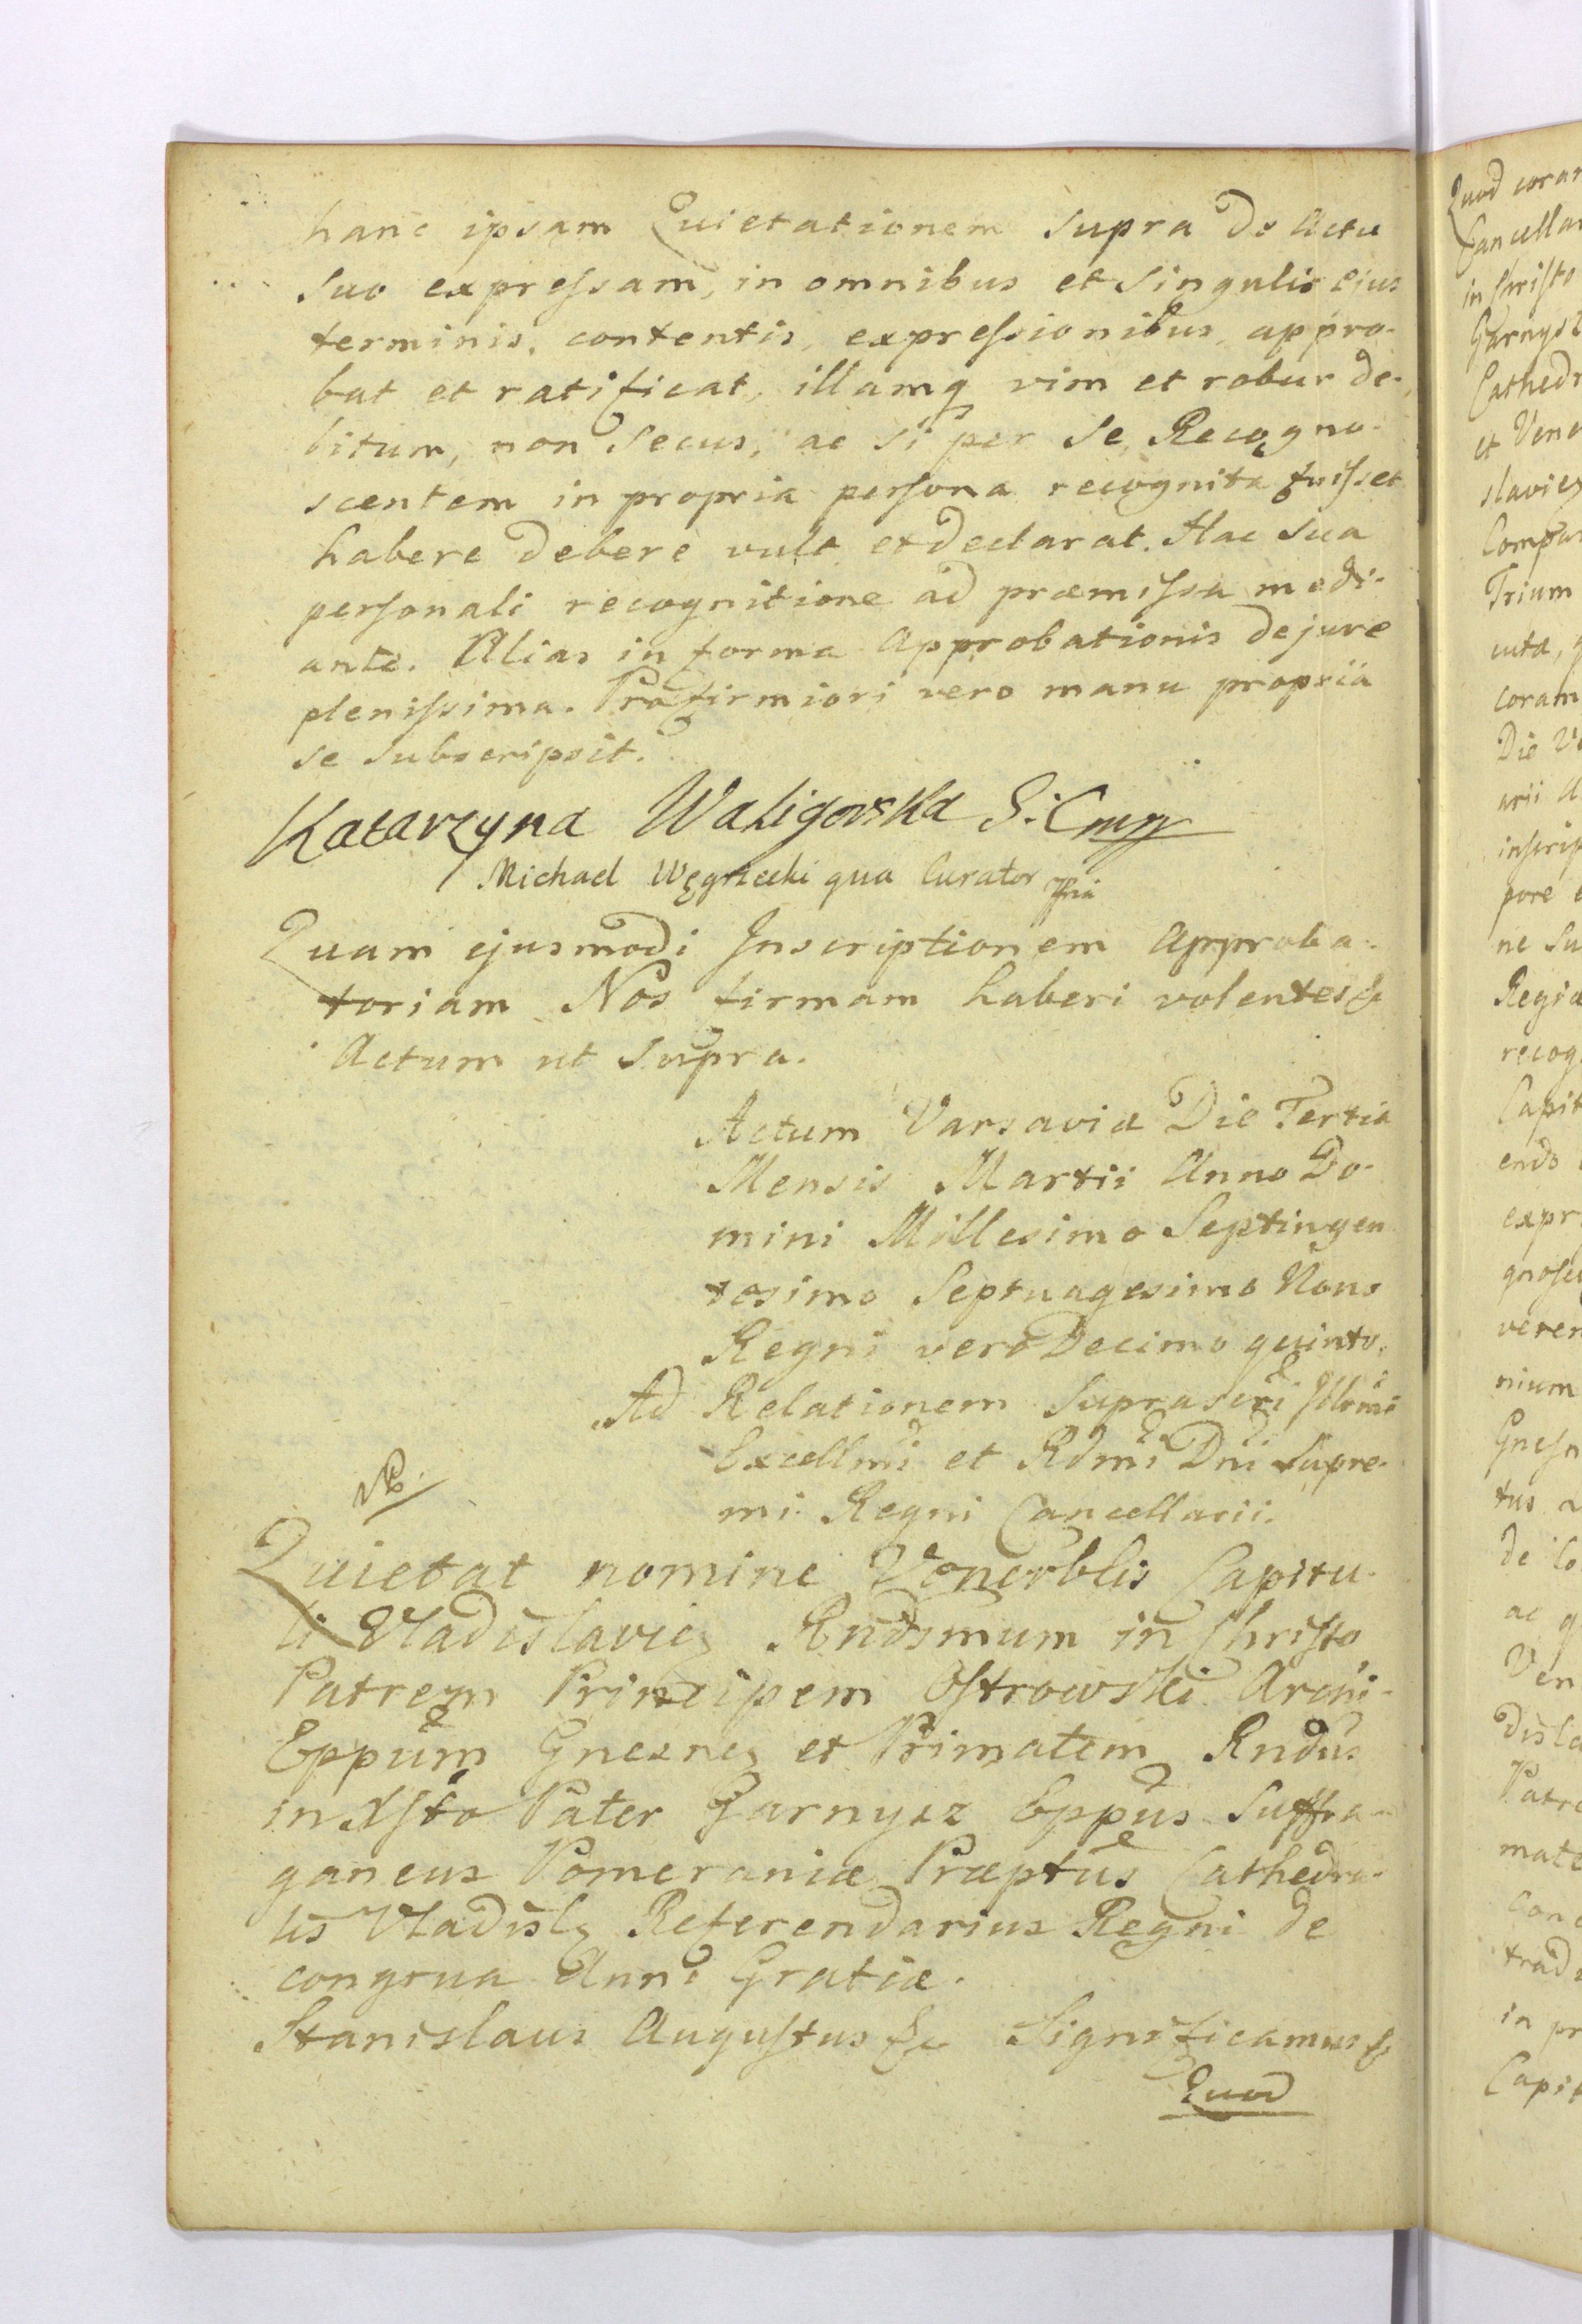 hanc ipsam Quietationem supra de Actu
suo expressam, in omnibus et singulis ejus
terminis, contentis, expressionibus, appro-
bat et ratificat, illamq vim et robur de-
bitum, non secus, ac si per se Recogno-
scentem in propria persona recognita fuisset
habere debere vult et declarat. Hac sua
personali recognitione ad præmissa medi-
ante. Alias in forma Approbationis de jure
plenissima. Pro firmiori vero manu propria
se subscripsit.
Katarzyna Waligorska S: C
Michael Węgrzecki qua Curator
Quam ejusmodi Inscriptionem Approba-
toriam Nos firmam haberi volentes &
Actum ut supra.
Actum Varsaviæ Die Tertia
Mensis Martii Anno Do-
mini Millesimo Septingen
tesimo Septuagesimo Nono
Regni vero Decimo quinto.
Ad Relationem suprascri Illmi
Excellmi et Rdmi Dni Supre-
mi Regni Cancellarii.
NB.
Quietat nomine Venerblis Capitu-
li Vladislavien Rndsmum in Christo
Patrem Principem Ostrowski Archi-
Eppum Gnesnen et Primatem Rndus
in Xsto Pater Garnysz Eppus Suffra-
ganeus Pomeraniæ Præptus Cathedra-
lis Vladisl Referendarius Regni de
congrua Anni Gratiæ.
Stanislaus Augustus &c Significamus &
Quod
Quod coram
Cancellar
in Christo
Garnysz
Cathedr
et Vene
slavien
Compar
Trium
cuta,
coram
Die
arii A
inscrip
pore
ne su
Regia
recog
Capit
endo
expr
gnosc
veren
nium
Gnesn
tus
de Co
ac q
Ven
disla
Patre
mate
Conc
trad
in pr
Capit